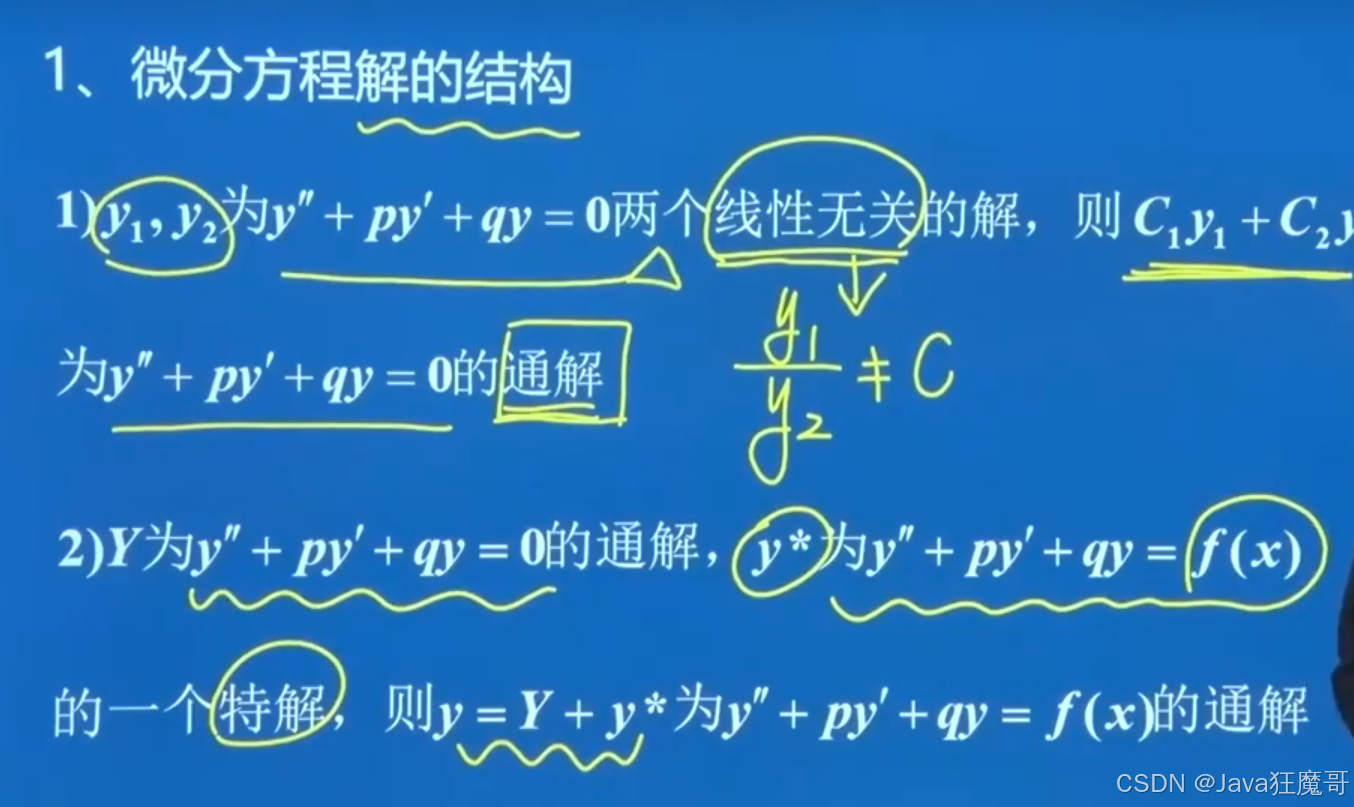 1、微分方程解的结构
1) y₁, y₂为y″ + py′ + qy = 0两个线性无关的解，则 C₁y₁ + C₂y
为y″ + py′ + qy = 0的通解
y₁/y₂ ≠ C
2)Y为y″ + py′ + qy = 0的通解，y*为y″ + py′ + qy = f(x)
的一个特解，则y = Y + y*为y″ + py′ + qy = f(x)的通解
CSDN @Java狂魔哥